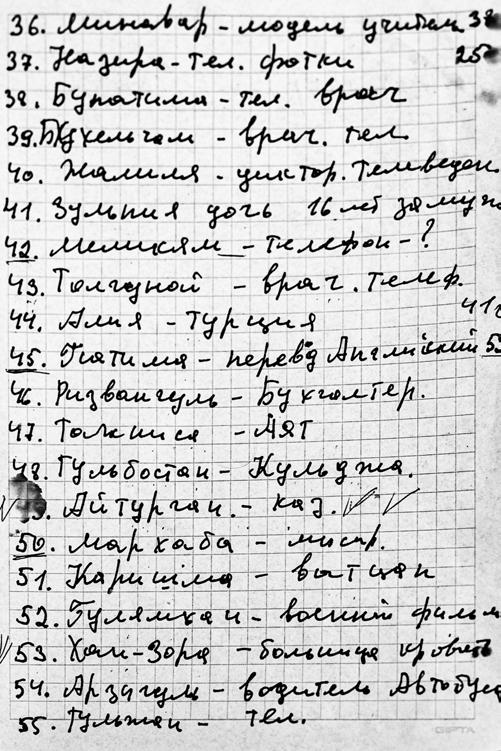 36. Минавар - модель учител 38
37. Назира - тел. фотки 25
38. Бупатима - тел. врач
39. Бухельчам - врач. тел
40. Жалиля - диктор. Телеведен
41. Зульпия дочь 16 лет замуж
42. Меликям - телефон - ?
43. Толгуной - врач. телеф.
44. Алия - Турция 41
45. Патима - перевод Английский 5
46. Ризвангуль - Бухгалтер.
47. - МЯТ
48. Гульбостан - Кульджа.
49. Айтурган. - каз.
50. Мархаба -
51. Каришма - ватцап
52. Гулямхан - военний фильм
53. Хан-Зора - больница кровать
54. Арзигуль - водитель Автобус
55. Гульжан - тел.